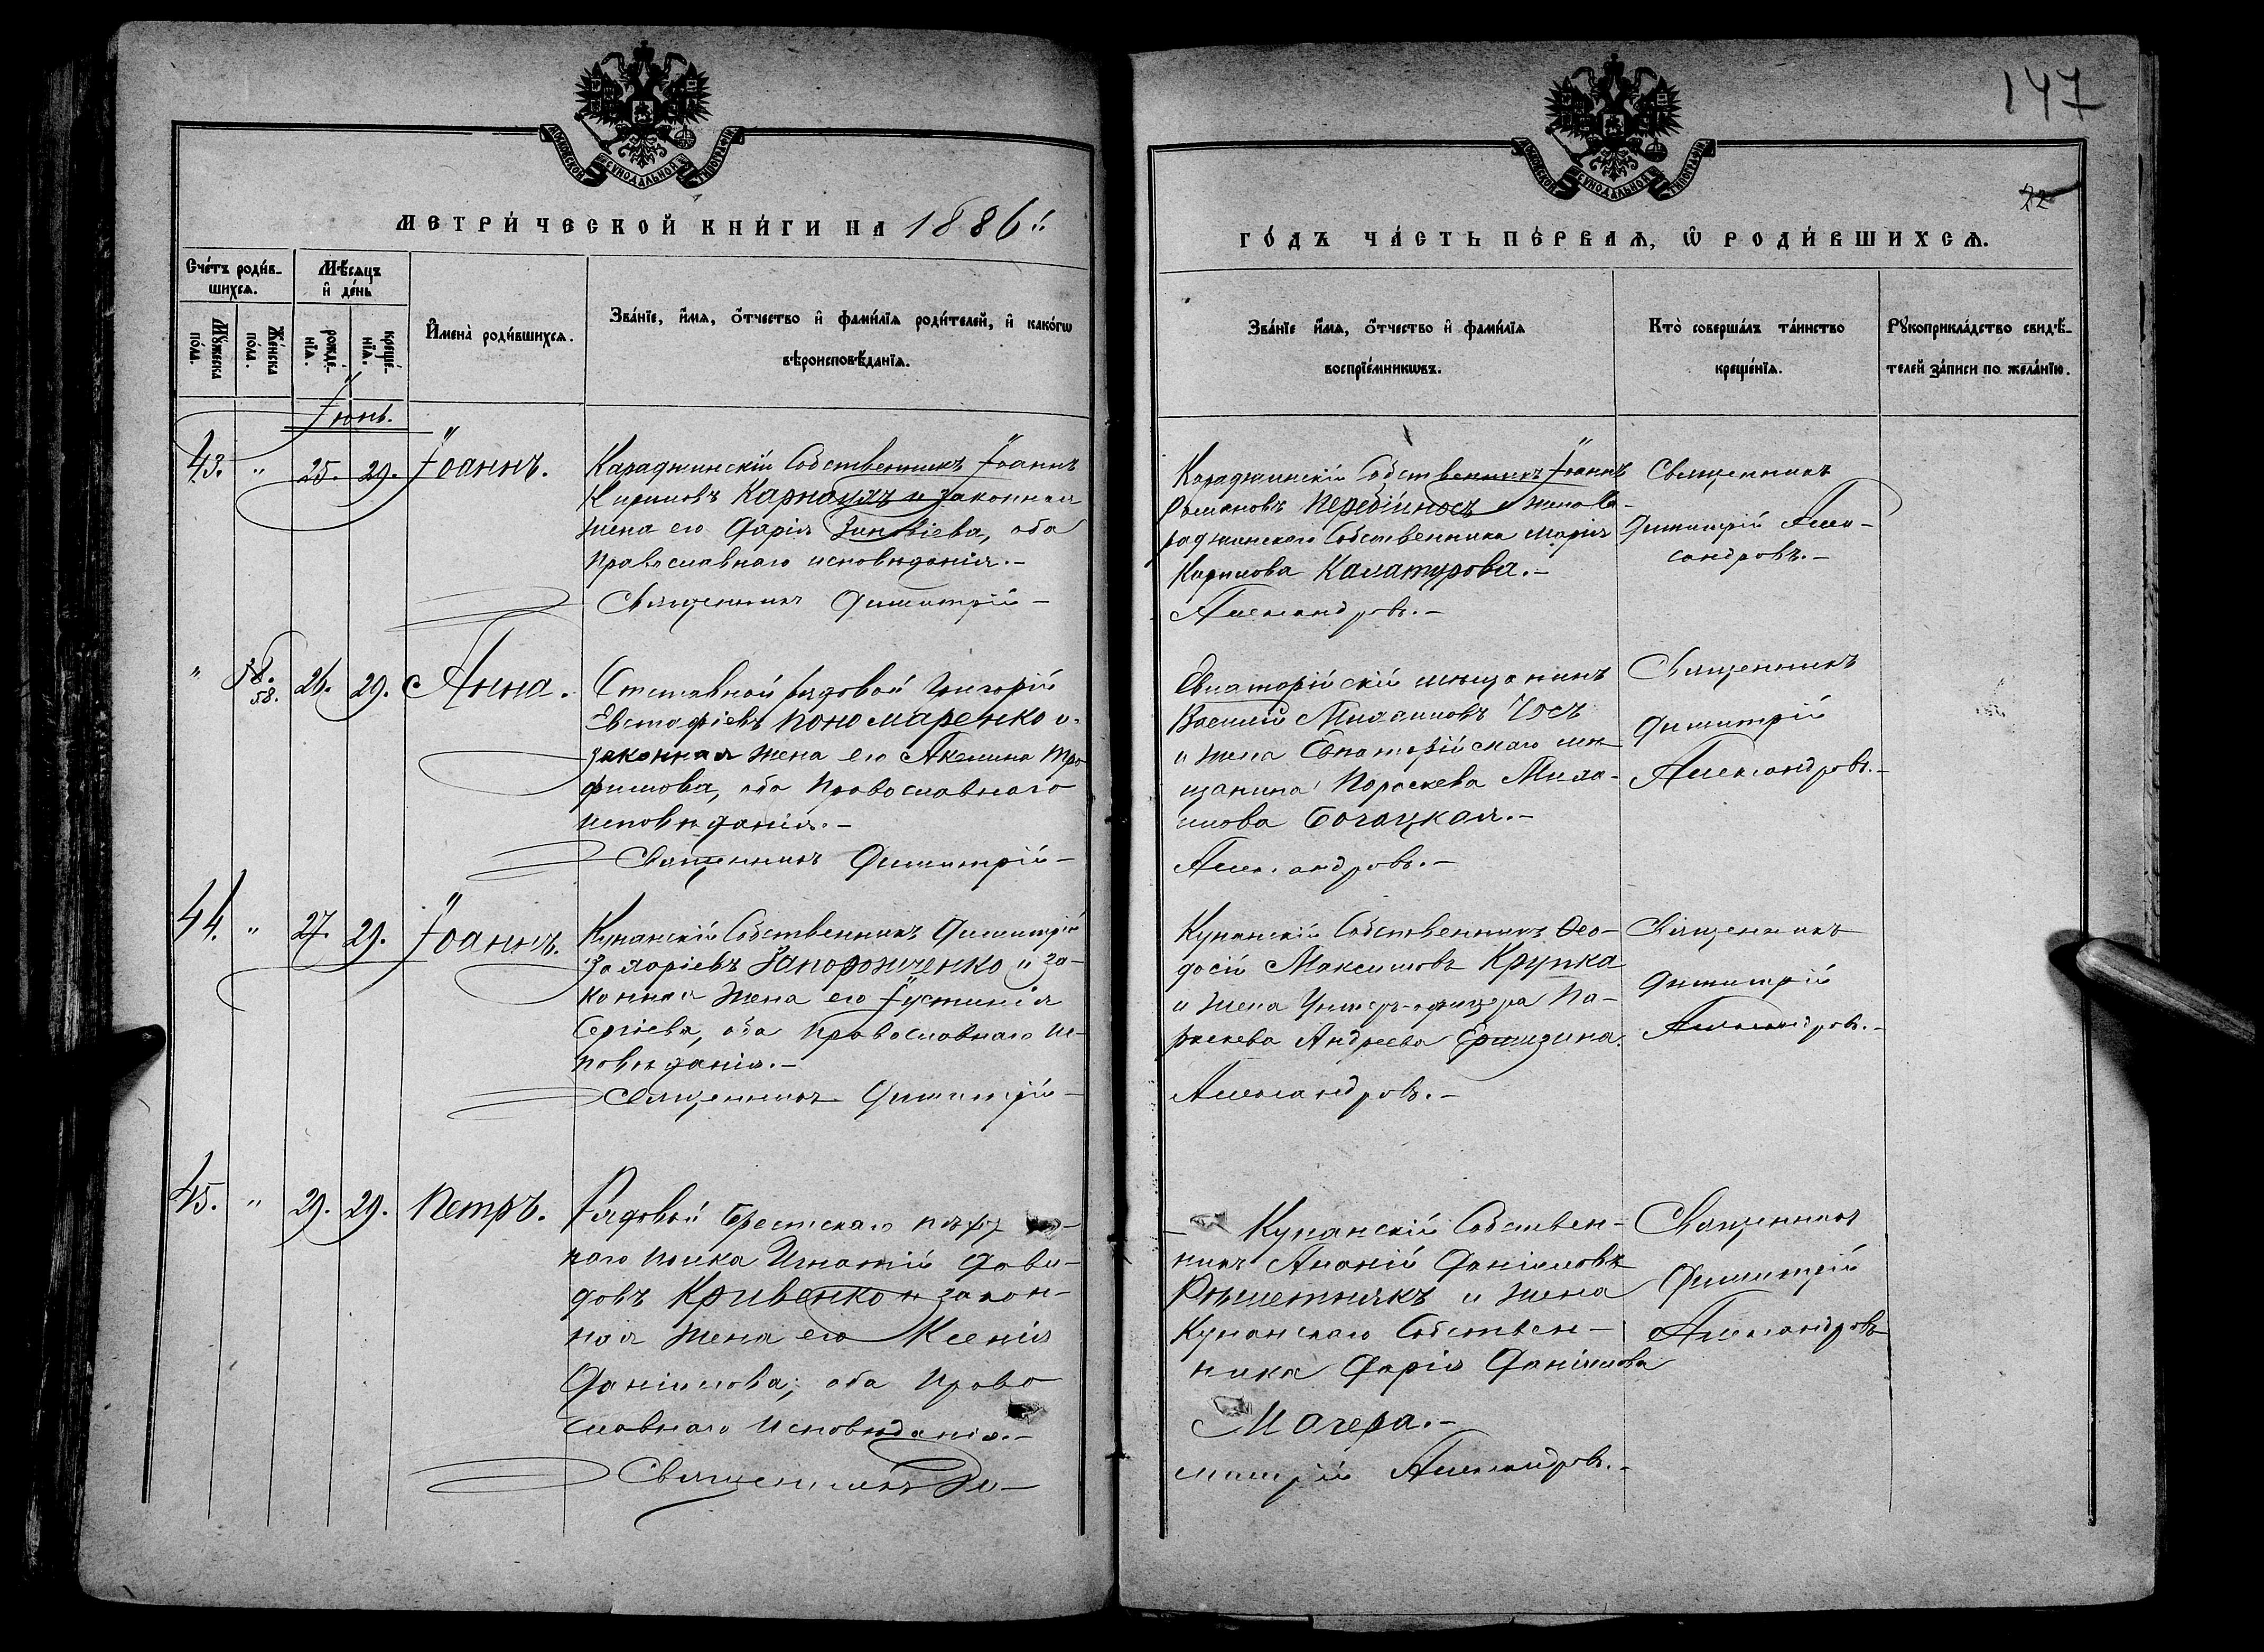 147
22
МОСКОВСКОЙ СѴНОДАЛЬНОЙ ТИПОГРАФІИ
МОСКОВСКОЙ СѴНОДАЛЬНОЙ ТИПОГРАФІИ
МЕТРИ́ЧЕСКОЙ КНИ́ГИ НА 1886.
ГО́ДЪ ЧА́СТЬ ПЕ́РВАѦ, Ѽ РОДИ́ВШИХСѦ.
Сче́тъ роди́в-
шихсѧ.
Мꙋжеска
по́ла.
Же́нска
по́ла.
Мѣ́сѧцъ
и҆ де́нь
рожде́-
нїѧ.
креще́-
нїѧ.
И҆мена̀ роди́вшихсѧ.
Зва́нїе, и҆́мѧ, ѻ҆́тчество и҆ фами́лїѧ роди́телей, и҆ како́гѡ
вѣроисповѣ́данїѧ.
Зва́нїе и҆́мѧ, ѻ҆́тчество и҆ фами́лїѧ
воспрїе́мникѡвъ.
Кто̀ соверша́лъ та́инство
креще́нїѧ.
Рꙋкоприкла́дство свидѣ́-
телей за́писи по жела́нїю.
Іюнь.
43. " 25. 29. Іоаннъ.
Караджинскій Собственникъ Іоаннъ
Кириловъ Карнаухъ и законная
жена его Дарія Зиновіева, оба
Православнаго исповѣданія.-
Священникъ Димитрій-
Караджинскій Собственникъ Іоаннъ
Романовъ и жена Ка-
раджинскаго Собственника Марія
Кирилова Калатурова.-
Александровъ.-
Священникъ
Димитрій Алек-
сандровъ.-
" 58. 26. 29. Анна.
58.
Отставной рядовой Григорій
Евстафіевъ Пономаренко и
законная жена его Акелина Тро-
фимова, оба Православнаго
исповѣданія.-
Священникъ Димитрій-
Евпаторійскій мѣщанинъ
Василій
и жена Евпаторійскаго мѣ-
щанина Параскева
Богацкая.-
Александровъ.-
Священникъ
Димитрій
Александровъ.-
44. " 27. 29. Іоаннъ.
Кунанскій Собственникъ Димитрій
Захаріевъ Запорожченко и за-
конная жена его Іустинія
Сергіева, оба Православнаго ис-
повѣданія.-
Священникъ Димитрій-
Кунанскій Собственникъ Ѳео-
досій Максимовъ Крупка
и жена Унтеръ-офицера Па-
раскева Андреева
Александровъ.-
Священникъ
Димитрій
Александровъ.-
45. " 29. 29. Петръ.
Рядовой Брестскаго пѣхот-
наго полка Игнатій Дави-
довъ Кривенко и закон-
ная жена его Ксенія
Даніилова, оба Право
славнаго Исповѣданія.-
Священникъ Ди-
Кунанскій Собствен-
никъ Ананій Даніиловъ
Рѣшетнякъ и жена
Кунанскаго Собствен-
ника Дарія Даніилова
Магера.-
митрій Александровъ.-
Священникъ
Димитрій
Александровъ